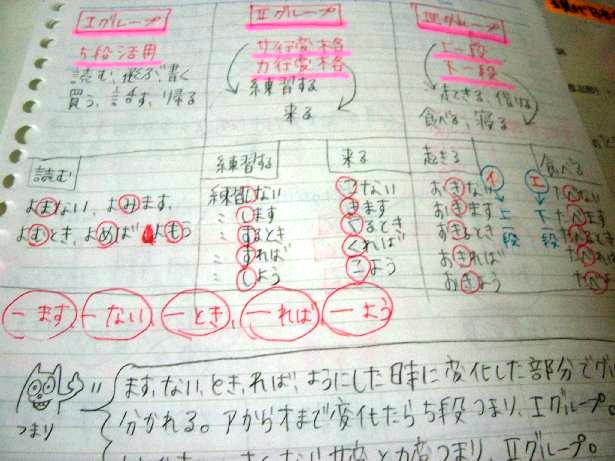 Ⅰグループ Ⅱグループ Ⅲグループ
5段活用 サ行変格 上一段
カ行変格 下一段
読む、飛ぶ、書く 練習する 起きる、借りる
買う、話す、帰る 来る 食べる、寝る
読む 練習する 来る 起きる 食べる
よまない、よみます、
よむとき、よめば よもう
練習しない
〃します
〃するとき
〃すれば
〃しよう
こない
きます
くるとき
くれば
こよう
おきない
おきます
おきるとき
おきれば
おきよう
イ
上
段
エ
下
段
たべない
たべます
たべるとき
たべれば
ーます ーない、ーとき、ーれば、ーよう
つまり
ます、ない、とき、れば、ようにした時に変化した部分でグル
分かれる。アからオまで変化したら5段つまり、Ⅰグループ。
つまり、Ⅱグループ。